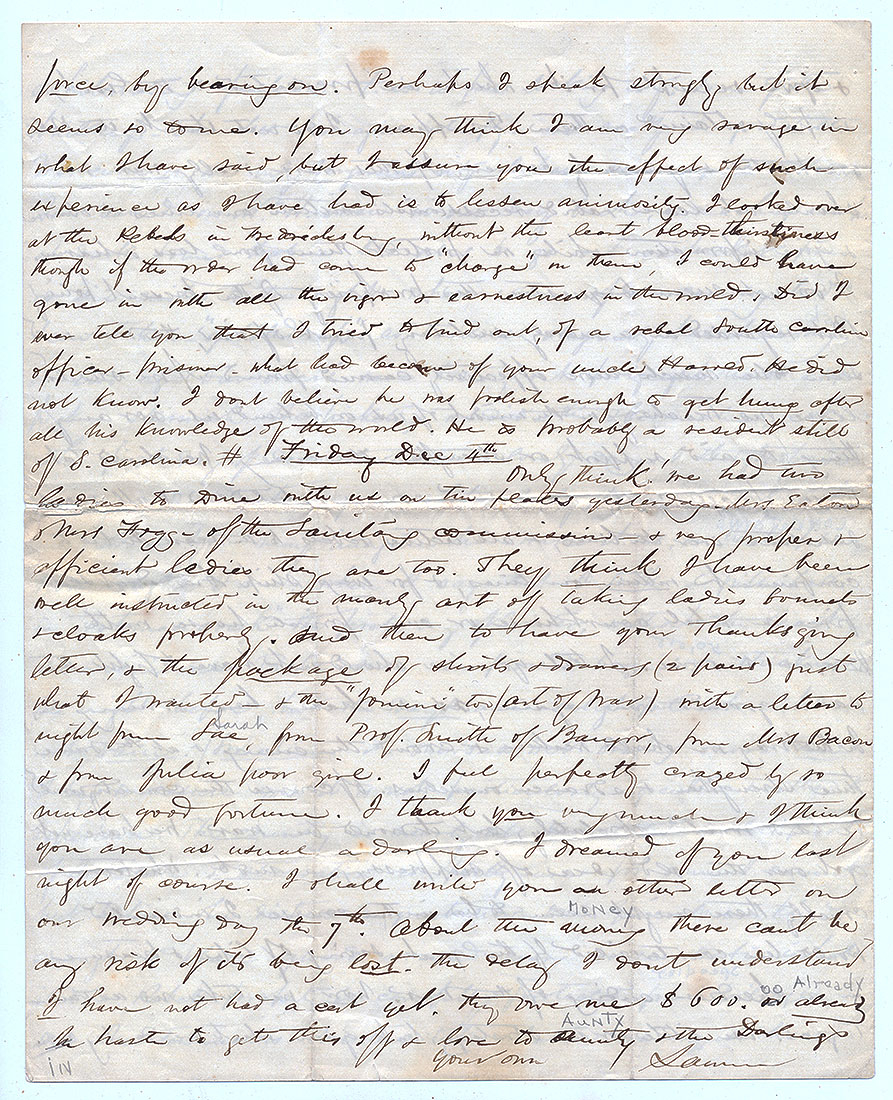 force, by bearing on. Perhaps I speak strongly but it
seems so to me. You may think I am very savage in
what I have said, but I assure you the effect of such
experience as I have had is to lessen animosity. I looked over
at the Rebels in Fredricksburg, without the least blood-thirstiness
though if the order had come to "charge" on them, I could have
gone in with all the vigor & earnestness in the world. Did I
ever tell you that I tried to find out, of a rebel South carolina
officer - prisoner - what had become of your uncle Harred. He did
not know. I dont believe he was foolish enough to get hung after
all his knowledge of the world. He is probably a resident still
of S. carolina. # Friday Dec 4th
Only think! we had two
ladies to Dine with us on tin plates yesterday. Mrs Eaton
& Mrs Fogg - of the Sanitary commission - & very proper &
efficient ladies they are too. They think I have been
well instructed in the manly art of taking ladies bonnets
& cloaks properly. And then to have your Thanksgiving
letter, & the package of shirts & drawers (2 pairs) just
what I wanted - & the "Jomini" too (art of War) with a letter to
Sarah
night from Sae, from Prof. Smith of Bangor, from Mrs Bacon
& from Julia poor girl. I feel perfectly crazed by so
much good fortune. I thank you very much & I think
you are as usual a darling. I dreamed of you last
night of course. I shall write you an other letter on
MONEY
our wedding day the 7th. About the money there cant be
any risk of its being lost. the delay I dont understand
Already
I have not had a cent yet. they owe me $600. already
AUNTY
In haste to get this off & love to Aunty & the Darlings
IN
your own Lawrence